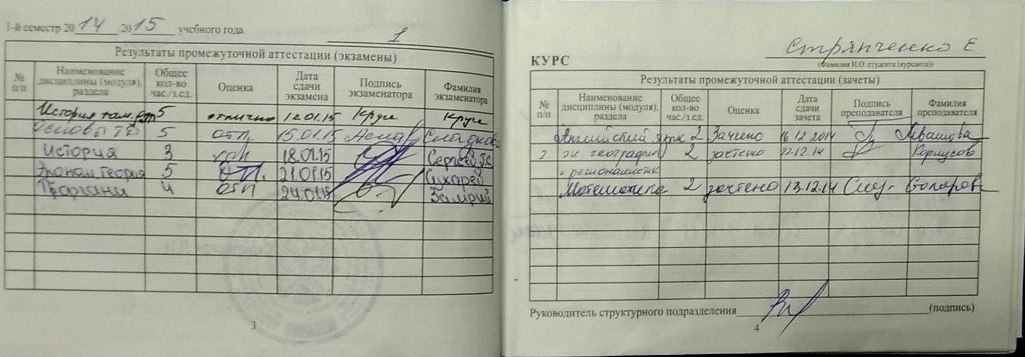 1-й семестр 2014/2015 учебного года 1
Результаты промежуточной аттестации (экзамены)
№ п/п Наименование дисциплины (модуля), раздела Общее кол-во час./з.ед. Оценка Дата сдачи экзамена Подпись экзаменатора Фамилия экзаменатора
История там. 5 отлично 12.01.15 Крус Крус
Основы 5 отл. 15.01.15
История 3 18.01.15 Сергеев
Эконом. теория 5 отл. 21.01.15 Сухарев
4 отл 24.01.15
3
КУРС Стряпченко Е
(Фамилия И.О. студента (курсанта))
Результаты промежуточной аттестации (зачеты)
№ п/п Наименование дисциплины (модуля), раздела Общее кол-во час./з.ед. Оценка Дата сдачи зачета Подпись преподавателя Фамилия преподавателя
Английский язык 2 Зачтено 16.12.2014 Ивашова
2 эк география 2 зачтено 22.12.14
и регионалистик
Математика 2 зачтено 13.12.14 Столяров
Руководитель структурного подразделения (подпись)
4